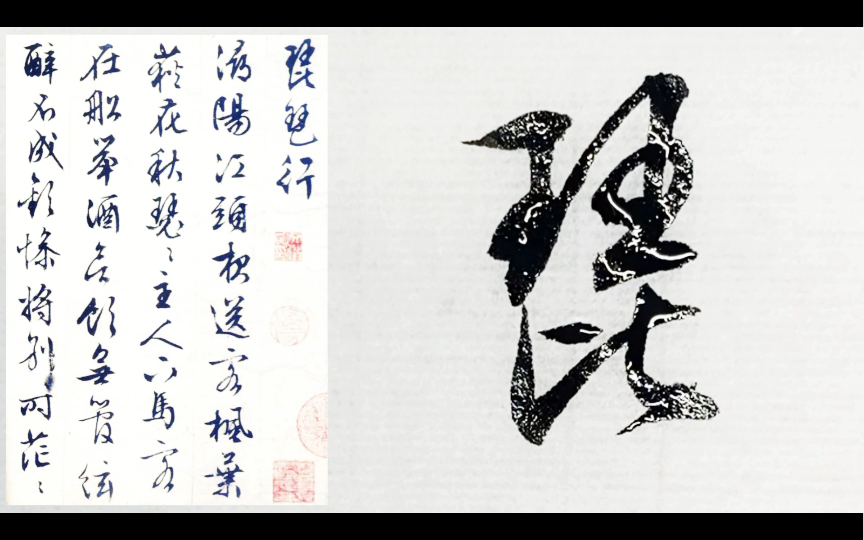 琵琶行
潯陽江頭夜送客楓葉
荻花秋瑟〻主人下馬客
在船舉酒欲飲無管絃
醉不成歡慘將別時茫〻
琵